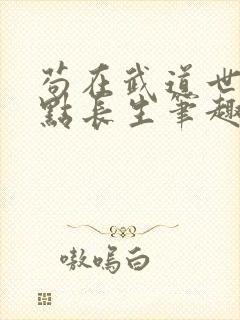 苟在武道世
點長生筆趣
嗷嗚白